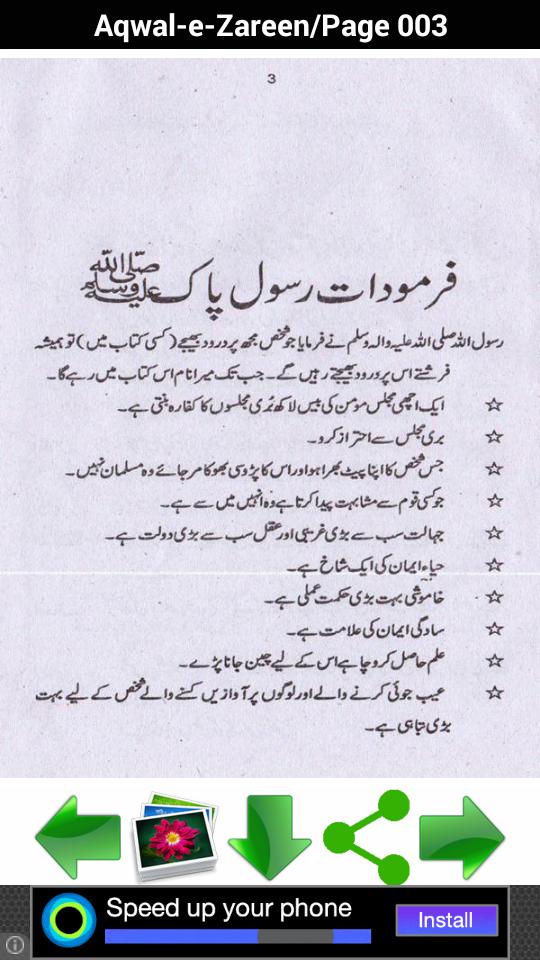 Aqwal-e-Zareen/Page 003
3
فرمودات رسول پاک صلی اللہ علیہ وسلم
رسول اللہ صلی اللہ علیہ والہ وسلم نے فرمایا جو شخص مجھ پر درود بھیجے (کسی کتاب میں) تو ہمیشہ
فرشتے اس پر درود بھیجتے رہیں گے۔ جب تک میرا نام اس کتاب میں رہے گا۔
☆ ایک اچھی مجلس مومن کی بیس لاکھ بُری مجلسوں کا کفارہ بنتی ہے۔
☆ بری مجلس سے احتراز کرو۔
☆ جس شخص کا اپنا پیٹ بھرا ہو اور اس کا پڑوسی بھوکا مر جائے وہ مسلمان نہیں۔
☆ جو کسی قوم سے مشابہت پیدا کرتا ہے وہ انہیں میں سے ہے۔
☆ جہالت سب سے بڑی غریبی اور عقل سب سے بڑی دولت ہے۔
☆ حیاء ایمان کی ایک شاخ ہے۔
☆ خاموشی بہت بڑی حکمت عملی ہے۔
☆ سادگی ایمان کی علامت ہے۔
☆ علم حاصل کرو چاہے اس کے لیے چین جانا پڑے۔
☆ عیب جوئی کرنے والے اور لوگوں پر آوازیں کسنے والے شخص کے لیے بہت
بڑی تباہی ہے۔
Speed up your phone
Install